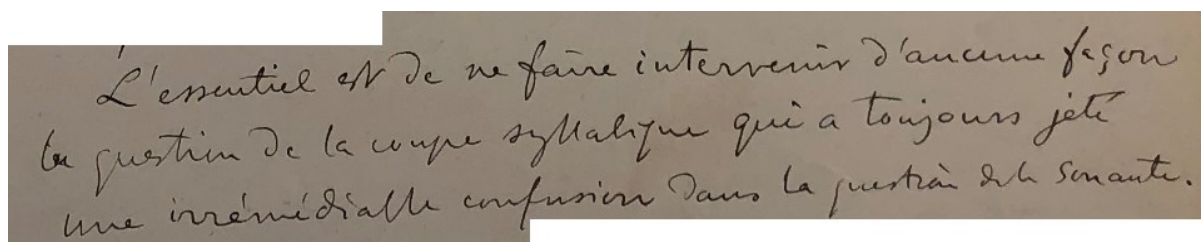 L'essentiel est de ne faire intervenir d'aucune façon
la question de la coupe syllabique qui a toujours jeté
une irrémédiable confusion dans la question de la sonante.